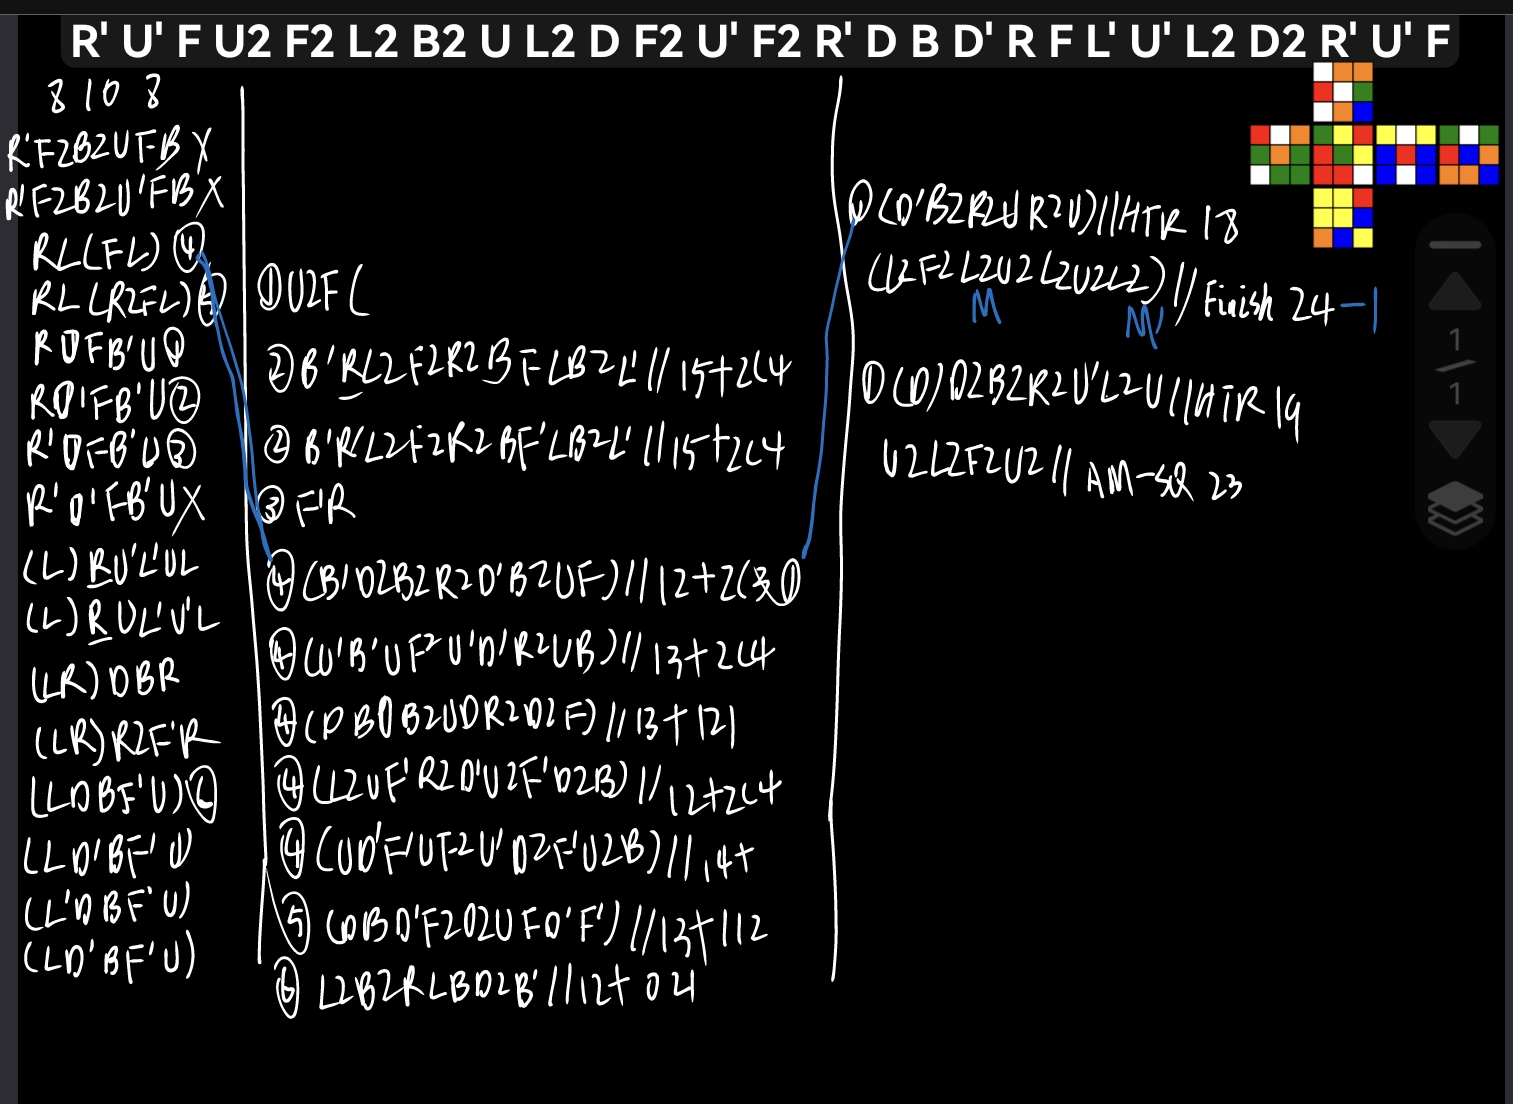 R' U' F U2 F2 L2 B2 U L2 D F2 U' F2 R' D B D' R F L' U' L2 D2 R' U' F
8 10 8
R'F2B2UFB X
R'F2B2U'FB X
RL(FL) ④
RL(R2FL)
RUFB'U ①
RU'FB'U ②
R'UFB'U ③
R'U'FB'U X
(L) RU'L'UL
(L) RUL'U'L
(LR) DBR
(LR) R2F'R
(LDBF'U) ⑥
(LD'BF'U)
(L'DBF'U)
(LD'BF'U)
① U2F (
② B'RL2F2R2BFLB2L' // 15+2c4
② B'R'L2F2R2BF'LB2L' // 15+2c4
③ F'R
④ (B'D2B2R2D'B2UF) // 12+2c3 ①
④ (U'B'UF2U'D'R2UB) // 13+2c4
④ (DBDB2UDR2D2F) // 13+121
④ (L2UF'R2D'U2F'D2B) // 12+2c4
④ (UD'F'UF2U'D2F'U2B) // 14+
⑤ (DBD'F2D2UFD'F') // 13+112
⑥ L2B2RLBD2B' // 12+04
① (D'B2R2UR2U) // HTR 18
(L2F2L2U2L2U2L2) // Finish 24-1
M M'
① (D) D2B2R2U'L2U // HTR 19
U2L2F2U2 // AM-SQ 23
1
1